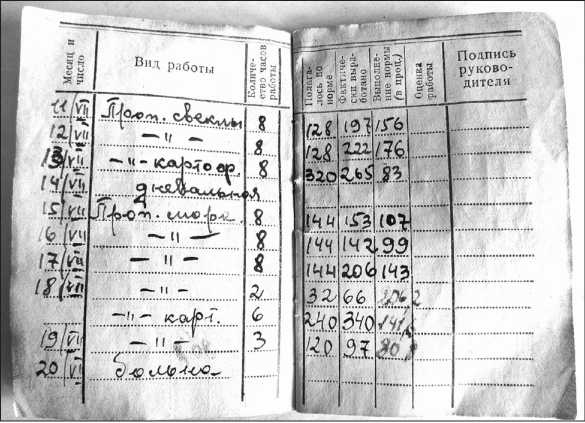 Месяц и число | Вид работы | Количество часов работы | Полагалось по норме | Фактически выработано | Выполнение нормы (в проц.) | Оценка работы | Подпись руководителя
11 | VII | Проп. свеклы | 8 | 128 | 197 | 156
12 | VII | —〃— | 8 | 128 | 222 | 176
13 | VII | —〃— картоф. | 8 | 320 | 265 | 83
14 | VII | дневальная
15 | VII | Проп. морк. | 8 | 144 | 153 | 107
16 | VII | —〃— | 8 | 144 | 142 | 99
17 | VII | —〃— | 8 | 144 | 206 | 143
18 | VII | —〃— | 2 | 32 | 66
—〃— карт. | 6 | 240 | 340 | 141
19 | VII | —〃— | 3 | 120 | 97 | 80
20 | VII | больна